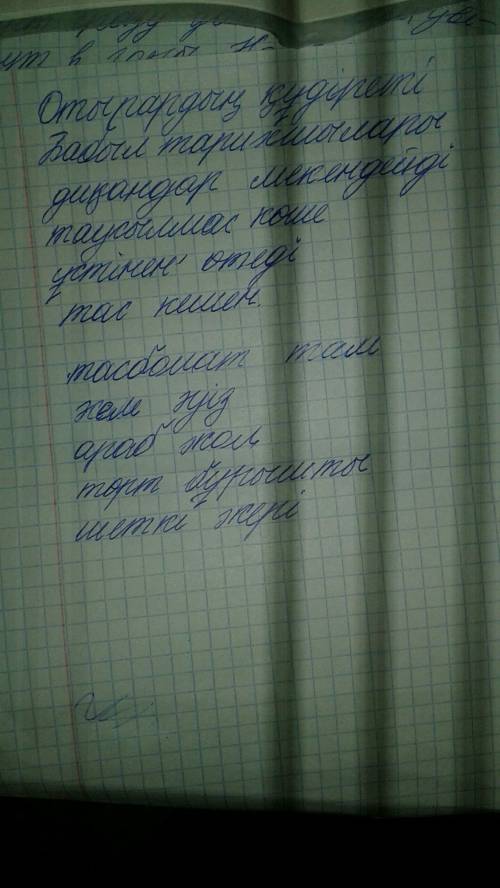 Отырардың құдіреті
Бабыл тарихшылары
диқандар мекендейді
таусылмас көше
үстінен өтеді
тас кешен.
тасбомат там
жем жүз
араб жол,
торт бұрышты
шеткі жері